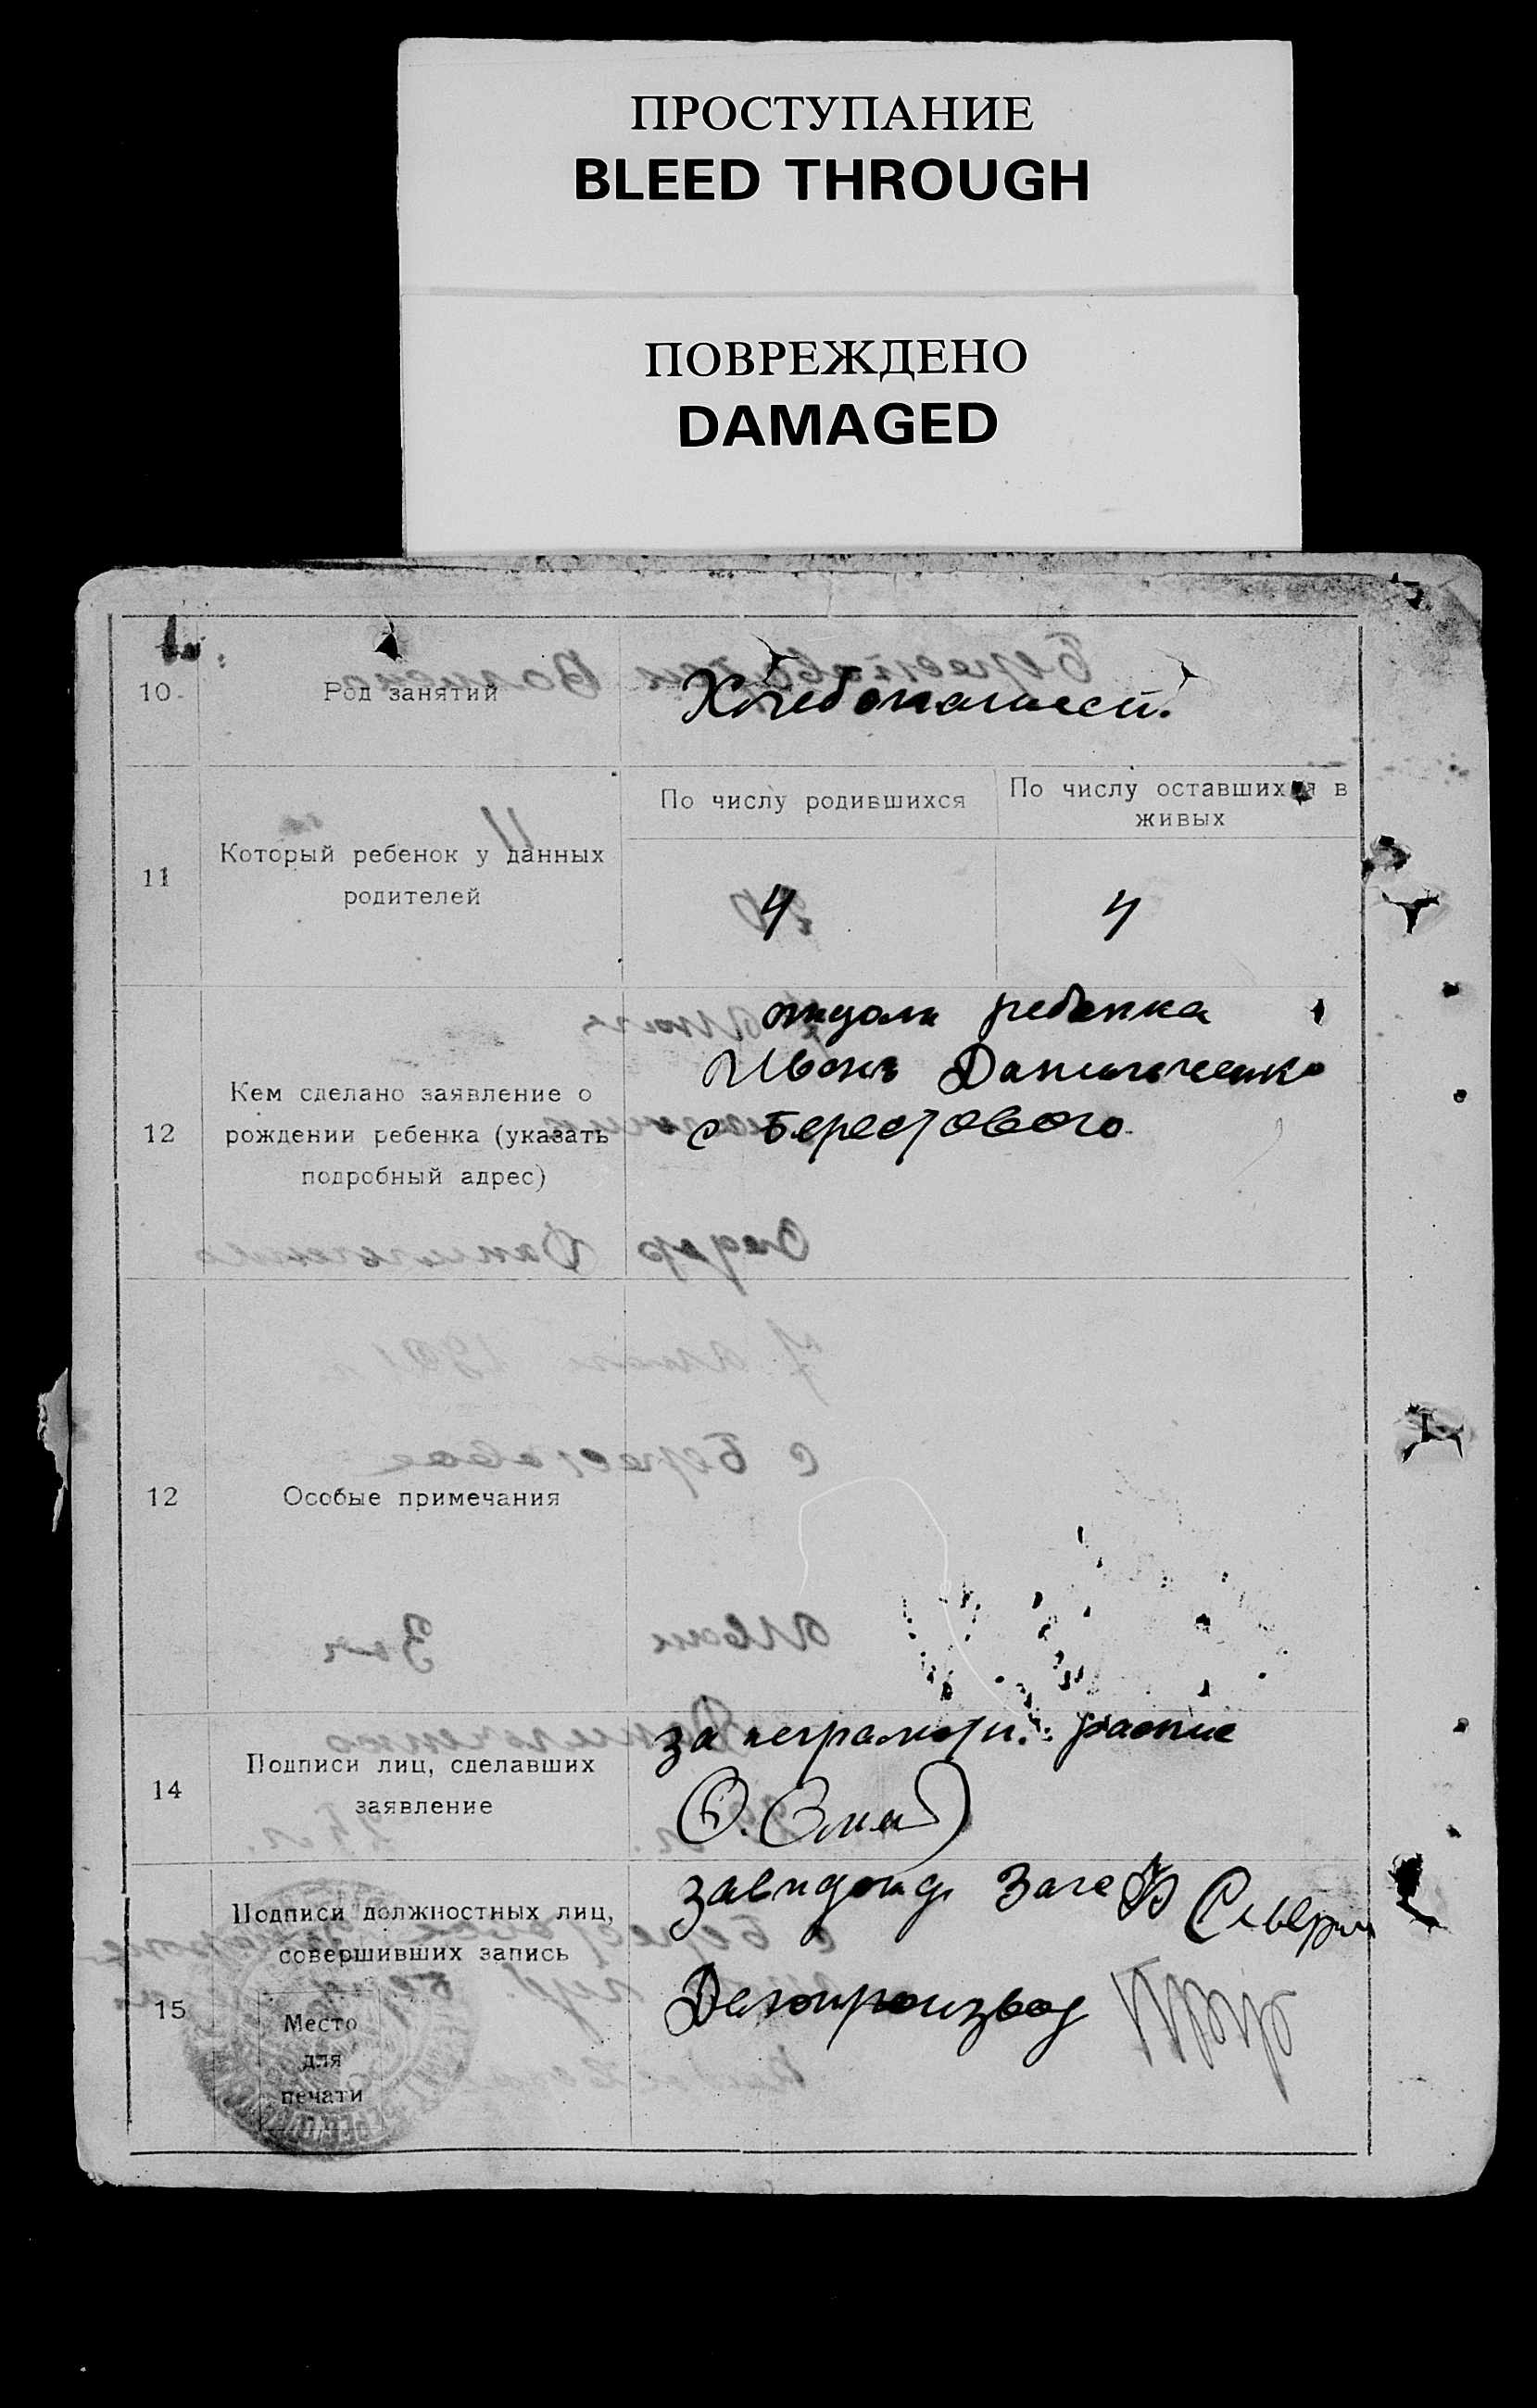 ПРОСТУПАНИЕ
BLEED THROUGH
ПОВРЕЖДЕНО
DAMAGED
10
Род занятий
Хлебопашест.
11
Который ребенок у данных
родителей
По числу родившихся
По числу оставшихся в
живых
4
4
12
Кем сделано заявление о
рождении ребенка (указать
подробный адрес)
ребенка
Иван Данильченко
с Берестового
12
Особые примечания
14
Подписи лиц, сделавших
заявление
за неграмотн.
15
Подписи должностных лиц,
совершивших запись
Место
для
печати
Загс
Делопроизвод